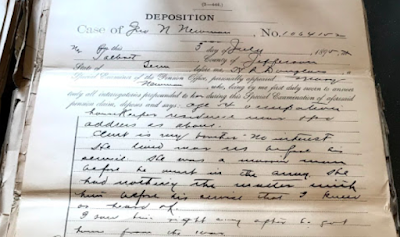 DEPOSITION
Case of Geo N Newman, No.
On this 5 day of July, 1895
Talbott County of Jefferson
State Tenn before me,
Special Examiner of the Pension Office, personally appeared
Newman, who, being by me first duly sworn to answer
truly all interrogatories propounded to h during this Special Examination of aforesaid
pension claim, deposes and says: age occupation
housekeeper residence and post
address as above.
Clmt is my brother. No interest
He lived near us before his
service. He was a
before he went in the army. He
had nothing the matter with
him before his service that I knew
or heard of.
I saw him right away after he got
home from the war.